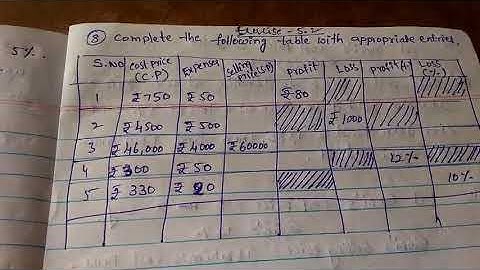 Exercise - 5.2
5%.
⑧ Complete the following table with appropriate entries.
S.No Cost price (C.P) Expenses Selling Price(S.P) Profit Loss Profit(%) Loss (%)
1 ₹750 ₹50 ₹80
2 ₹4500 ₹500 ₹1000
3 ₹46,000 ₹4000 ₹60000
4 ₹300 ₹50 12%
5 ₹330 ₹20 10%